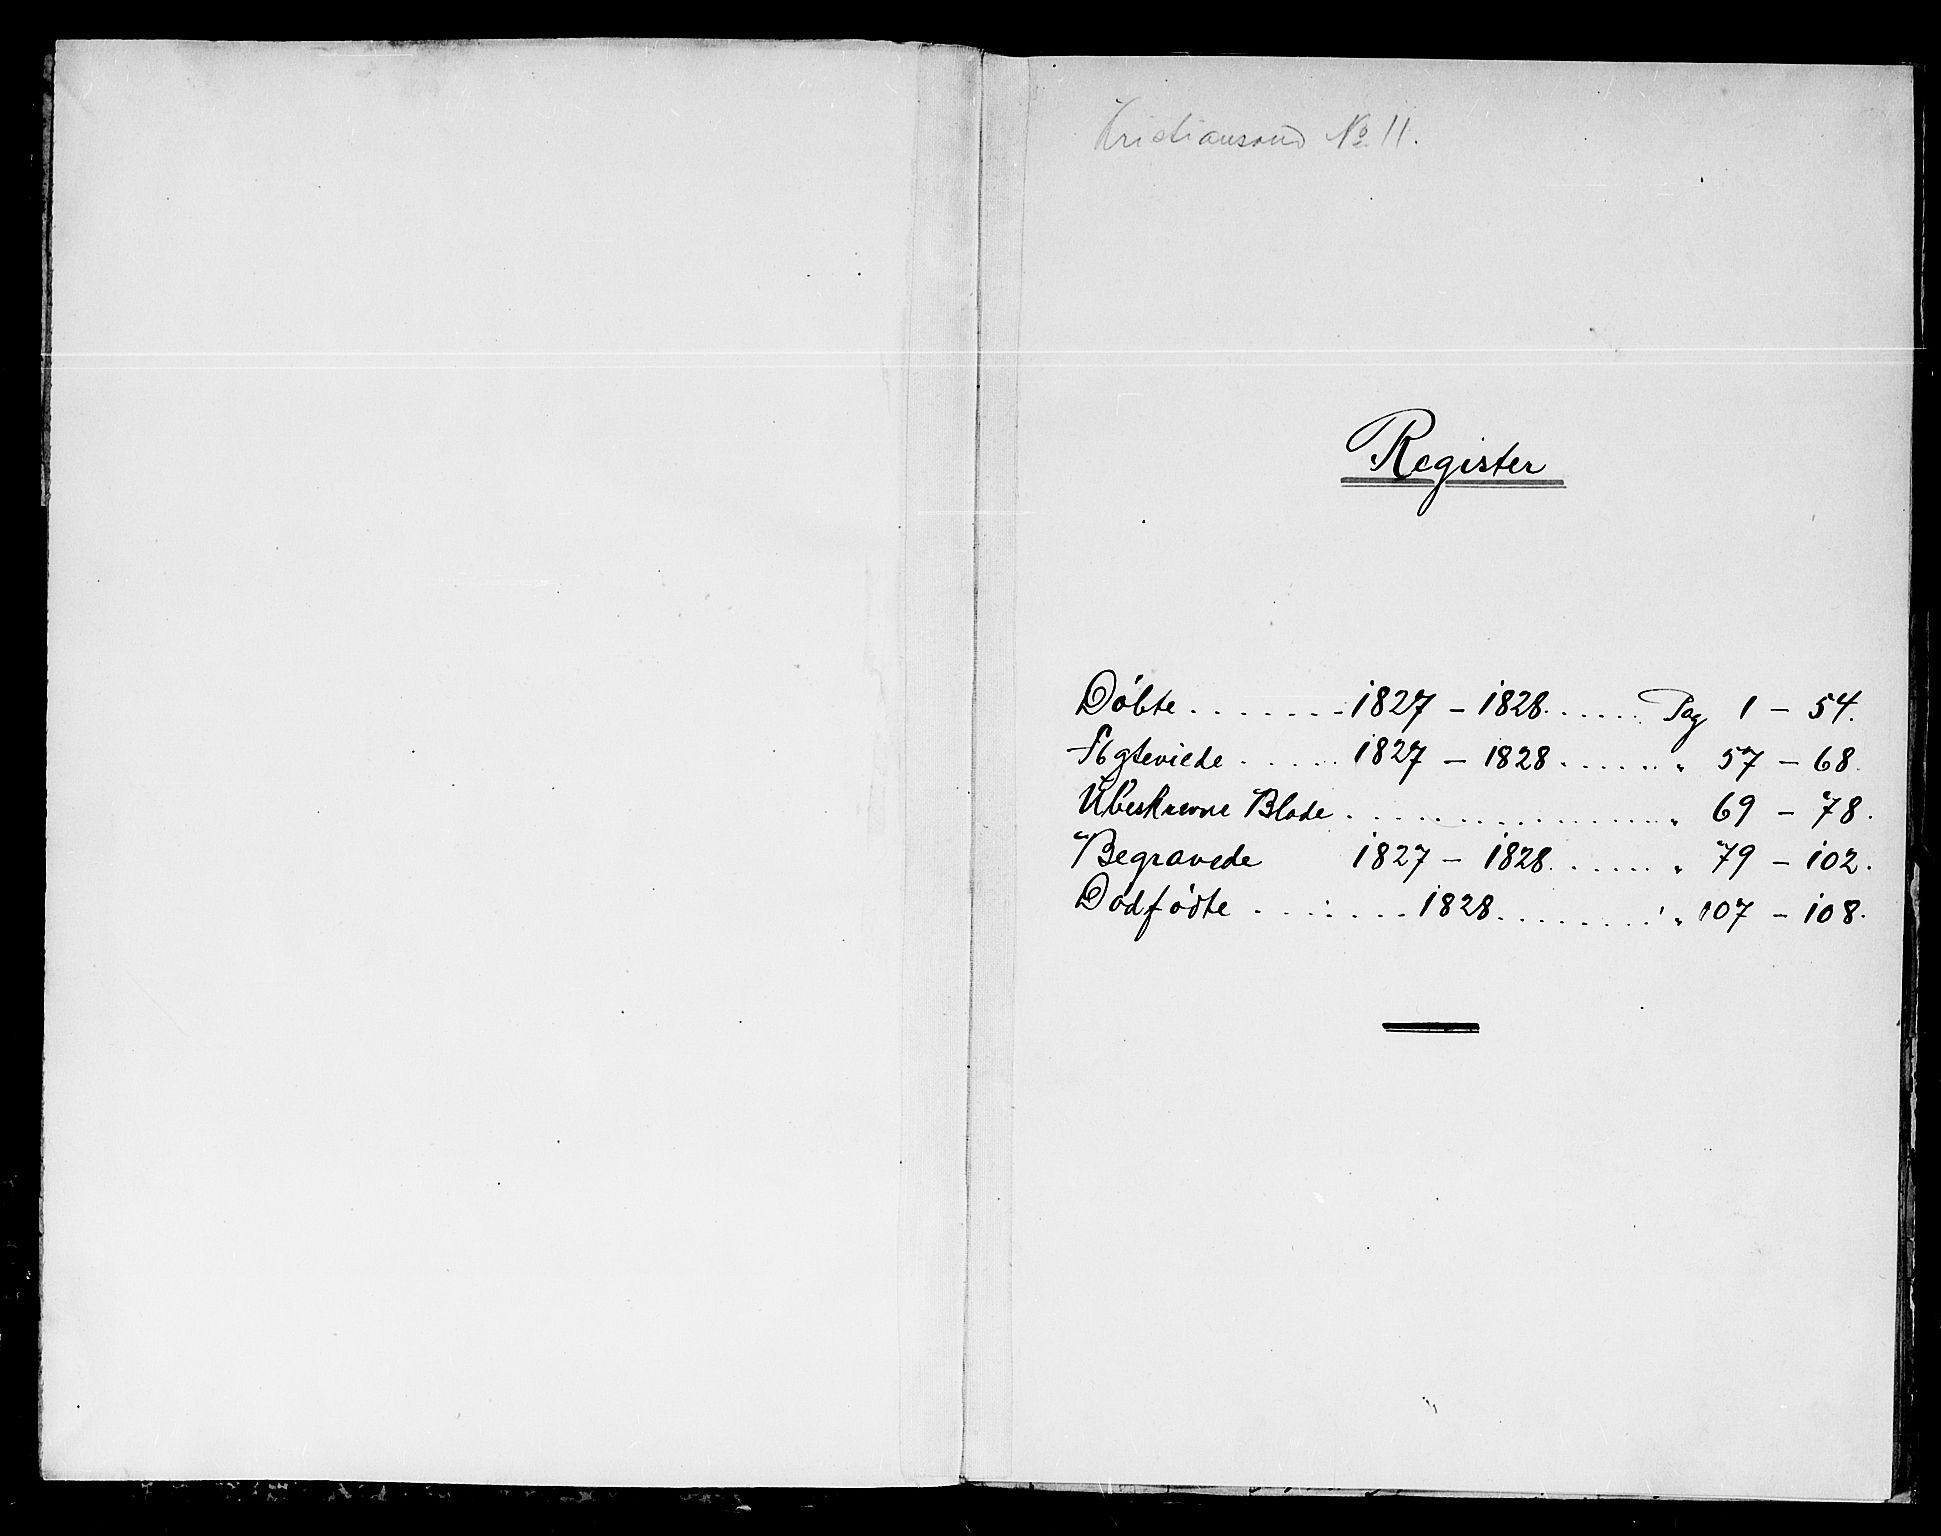 Kristiansand No 11.
Register
Döbte . . . . . . . 1827 – 1828 . . . . . Pag 1 – 54.
Ægteviede . . . . . 1827 – 1828 . . . . . . „ 57 – 68
Ubeskrevne Blade . . . . . . . . . . . . . . . . „ 69 – 78.
Begravede 1827 – 1828 . . . . . . „ 79 – 102.
Dødfødte . . . . . . . . 1828 . . . . . . . . . „ 107 – 108.